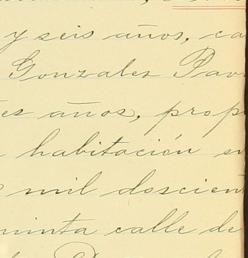 y seis años, ca
Gonzales Pav
es años, prop
habitación en
mil doscien
minta calle de